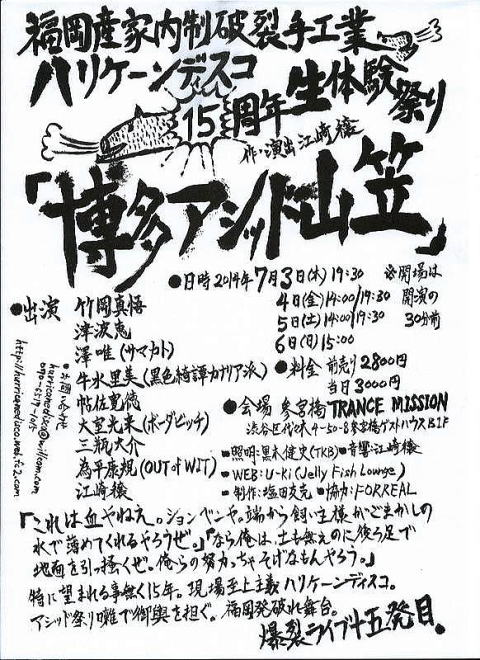 福岡産家内制破裂手工業
ハリケーンディスコ
15周年生体験祭り
作・演出 江崎穣
「博多アシッド山笠」
●日時 2014年7月3日(木) 19:30
4日(金) 14:00/19:30
5日(土) 14:00/19:30
6日(日) 15:00
※開場は
開演の
30分前
●出演 竹岡真悟
津波恵
澤唯(サマカト)
牛水里美(黒色綺譚カナリア派)
帖佐寛徳
大室光来(ボーダビッチ)
三瓶大介
為平康規(OUT of WIT)
江崎穣
●お問い合わせ
http://hurricanedisco.web.fc2.com
●料金 前売り2800円
当日 3000円
●会場 参宮橋 TRANCE MISSION
渋谷区代々木4-50-8 参宮橋ゲストハウスB1F
・照明:黒木健史(TKB)・音響:江崎穣
・WEB:U-Ki (Jelly Fish Lounge)
・制作:塩田友克 ・協力:FORREAL
「これは血やねえ。ションベンや。端から飼い主様がごまかしの
水で薄めてくれるやろうぜ。」「なら俺は、土も無えのに後ろ足で
地面を引っ掻くぜ。俺らの努力っちゃそげなもんやろう。」
特に望まれる事無く15年。現場至上主義ハリケーンディスコ。
アシッド祭り囃で御輿を担ぐ。福岡発破れ舞台。
爆裂ライブ十五発目。